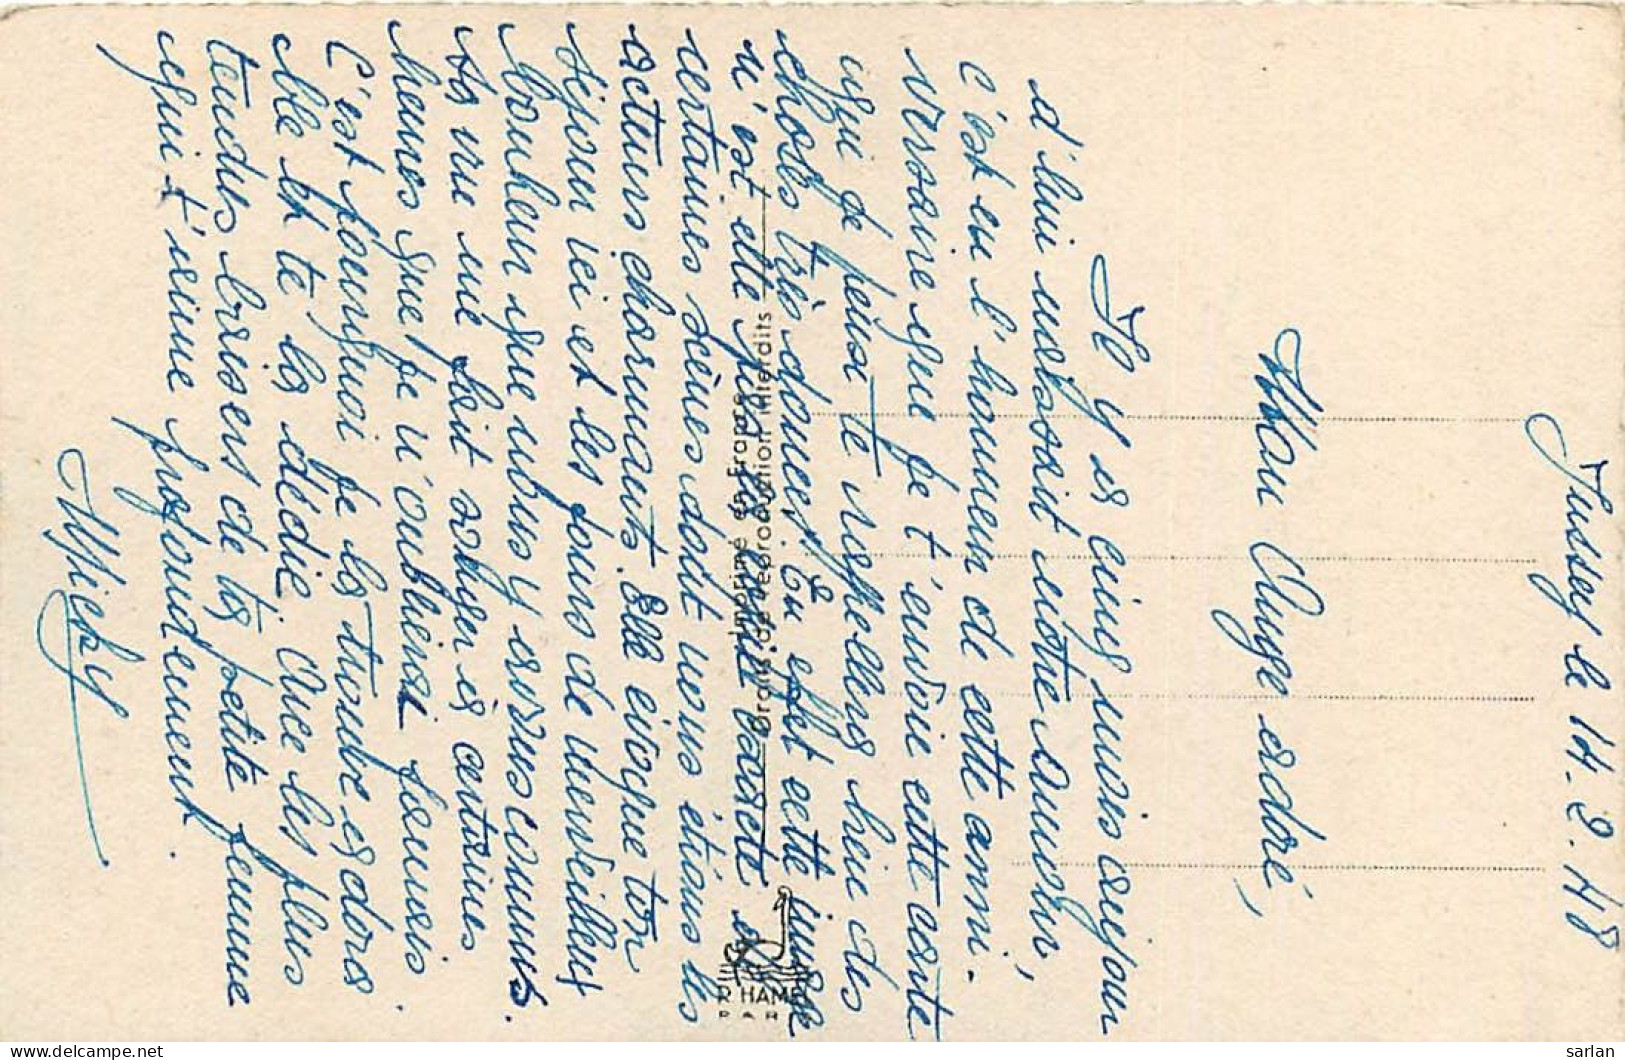 Jussey le 14.2.48
Mon Ange adoré,
Il y a cinq mois aujour
d'hui naissait notre Amour,
c'est en l'honneur de cette anni-
versaire que je t'envoie cette carte
qui je pense te rappellera bien des
choses très douces. En effet cette image
n'est elle pas la copie exacte de
certaines scènes dont nous étions les
acteurs charmants. Elle évoque ton
séjour ici et les jours de merveilleux
bonheur que nous y avons connus.
Sa vue me fait songer à certaines
heures que je n'oublierai jamais.
C'est pourquoi je la trouve adora
ble et te la dédie. Avec les plus
tendres baisers de ta petite femme
qui t'aime profondément.
Micky
Imprimé en France
Droits de reproduction interdits
R. HAMEL
PARIS
sarlan